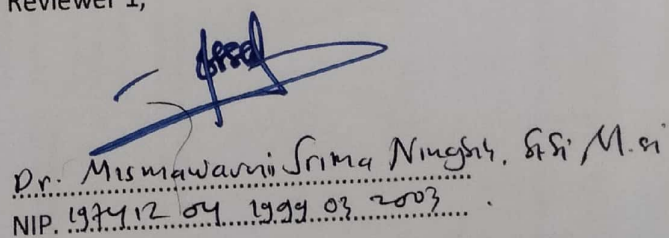 Reviewer 1,
Dr. Mismawarni Srima Ningsih, S.Si, M.Si
NIP. 19741204 1999 03 2003